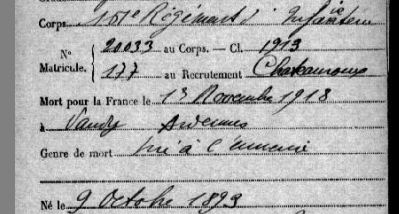 Corps 161e Régiment d'Infanterie
N° Matricule. 20033 au Corps. — Cl. 1913
177 au Recrutement Chateauroux
Mort pour la France le 13 Novembre 1918
à Vandy Ardennes
Genre de mort tué à l'ennemi
Né le 9 Octobre 1893